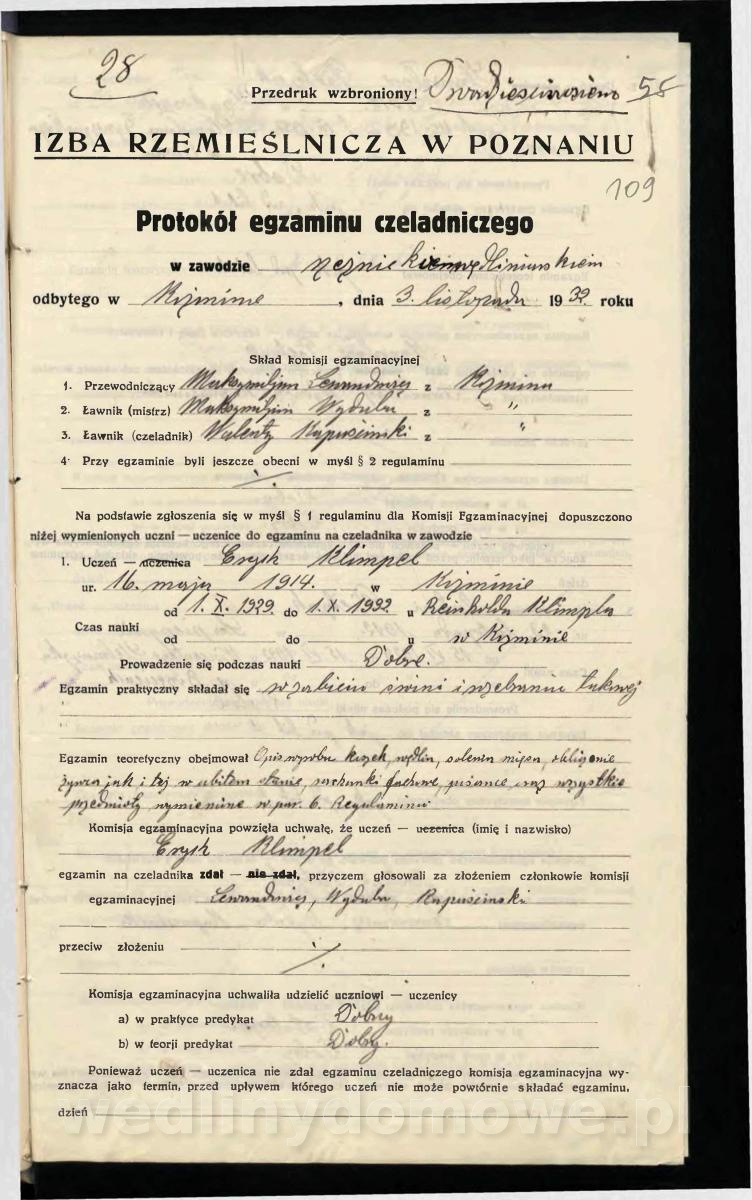 28
Przedruk wzbroniony! Dwadzieściaosiem 58
IZBA RZEMIEŚLNICZA W POZNANIU
109
Protokół egzaminu czeladniczego
w zawodzie
odbytego w Koźminie, dnia 3. listopada 1932 roku
Skład komisji egzaminacyjnej
1. Przewodniczący Maksymiljan z Koźmina
2. Ławnik (mistrz) Maksymiljan Wyduba z "
3. Ławnik (czeladnik) Walenty Kapuścinski z "
4. Przy egzaminie byli jeszcze obecni w myśl § 2 regulaminu
./.
Na podstawie zgłoszenia się w myśl § 1 regulaminu dla Komisji Egzaminacyjnej dopuszczono
niżej wymienionych uczni — uczenice do egzaminu na czeladnika w zawodzie
1. Uczeń — uczenica Eryk Klimpel
ur. 16. maja 1914. w Koźminie
od 1. X. 1929. do 1. X. 1932 u Reinholda Klimpla
Czas nauki
od do u w Koźminie
Prowadzenie się podczas nauki Dobre.
Egzamin praktyczny składał się w zabiciu świni i rozebraniu takowej
Egzamin teoretyczny obejmował Opis wyrobu kiszek, wędlin, solenia mięsa, obliczenie
żywca jak i tej w ubitem stanie, rachunki fachowe, pisanie oraz wszystkie
przedmioty wymienione w par. 6. Regulaminu
Komisja egzaminacyjna powzięła uchwałę, że uczeń — uczenica (imię i nazwisko)
Eryk Klimpel
egzamin na czeladnika zdał — nie zdał, przyczem głosowali za złożeniem członkowie komisji
egzaminacyjnej Wyduba, Kapuścinski
przeciw złożeniu ./.
Komisja egzaminacyjna uchwaliła udzielić uczniowi — uczenicy
a) w praktyce predykat Dobry
b) w teorji predykat Dobry.
Ponieważ uczeń — uczenica nie zdał egzaminu czeladniczego komisja egzaminacyjna wy-
znacza jako termin, przed upływem którego uczeń nie może powtórnie składać egzaminu,
dzień
wedlinydomowe.pl